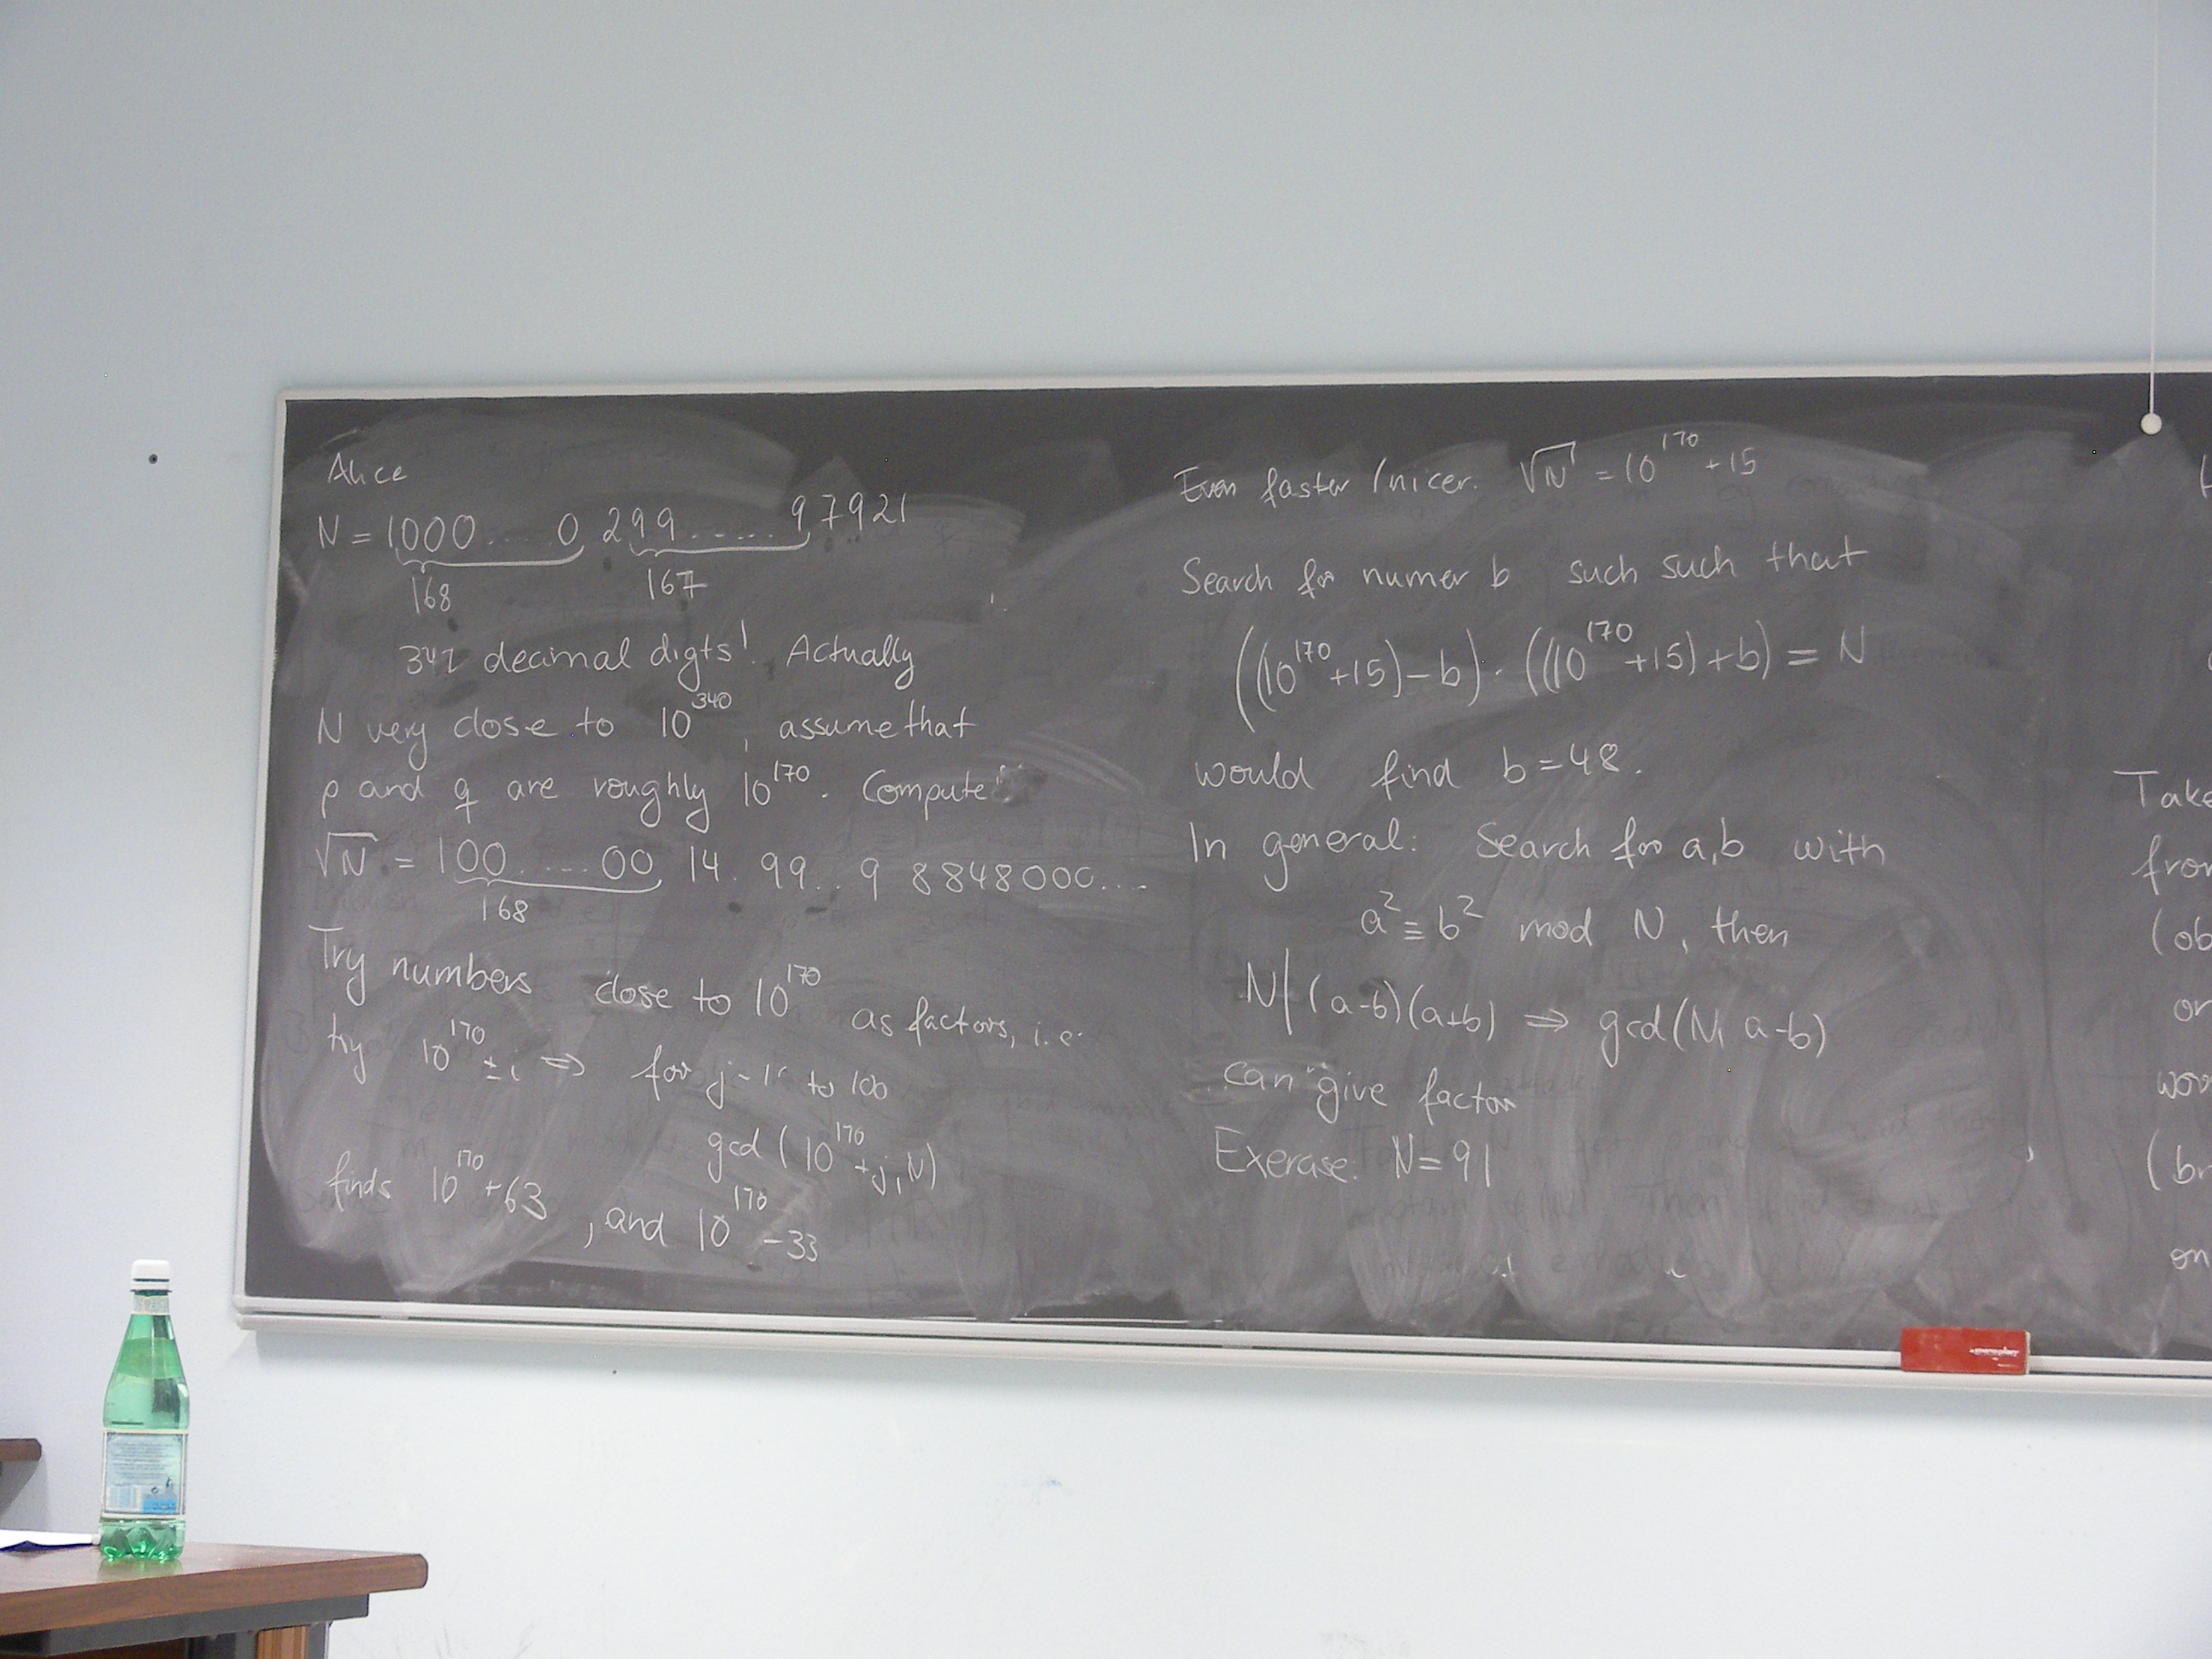 Alice
N = 1000.....0 299......97921
168 167
341 decimal digts! Actually
N very close to 10^340, assume that
p and q are roughly 10^170. Compute
√N = 100.....00 14.99..9 8848000....
168
Try numbers close to 10^170 as factors, i.e.
try 10^170 ± i ⇒ for j=1 to 100
gcd (10^170 + j, N)
finds 10^170 + 63, and 10^170 - 33
Even faster / nicer. √N = 10^170 + 15
Search for numer b such such that
((10^170 + 15) - b) · ((10^170 + 15) + b) = N
would find b = 48.
In general: Search for a,b with
a² ≡ b² mod N, then
N | (a-b)(a+b) ⇒ gcd(N, a-b)
can give factor
Exercise. N = 91
Take
from
(ob
or
wor
(br
on